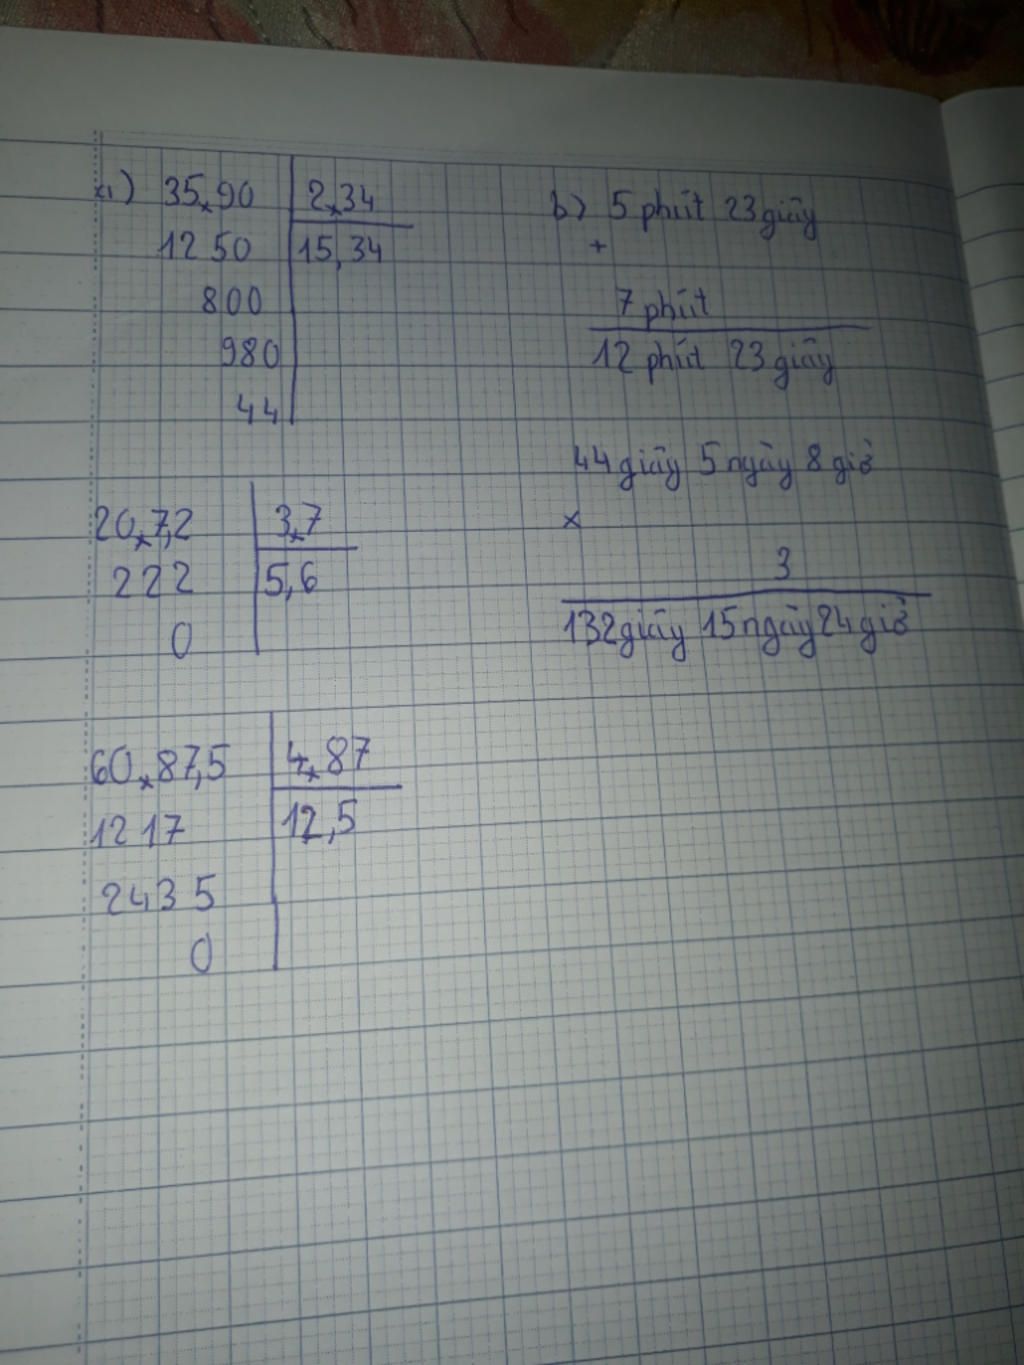 a) 35,90 2,34
1250 15,34
800
980
44
20,7,2 3,7
222 5,6
0
60,87,5 4,87
1217 12,5
2435
0
b) 5 phút 23 giây
+
7 phút
12 phút 23 giây
44 giây 5 ngày 8 giờ
x
3
132 giây 15 ngày 24 giờ